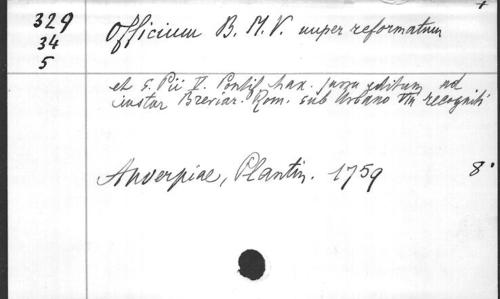 329
34
5
Officium B. M. V. nuper reformatum
et S. Pii V. Pontif. Max. jussu editum ad
instar Breviar. Rom. sub Urbano VIII recogniti
Antverpiae, Plantin. 1759 8°